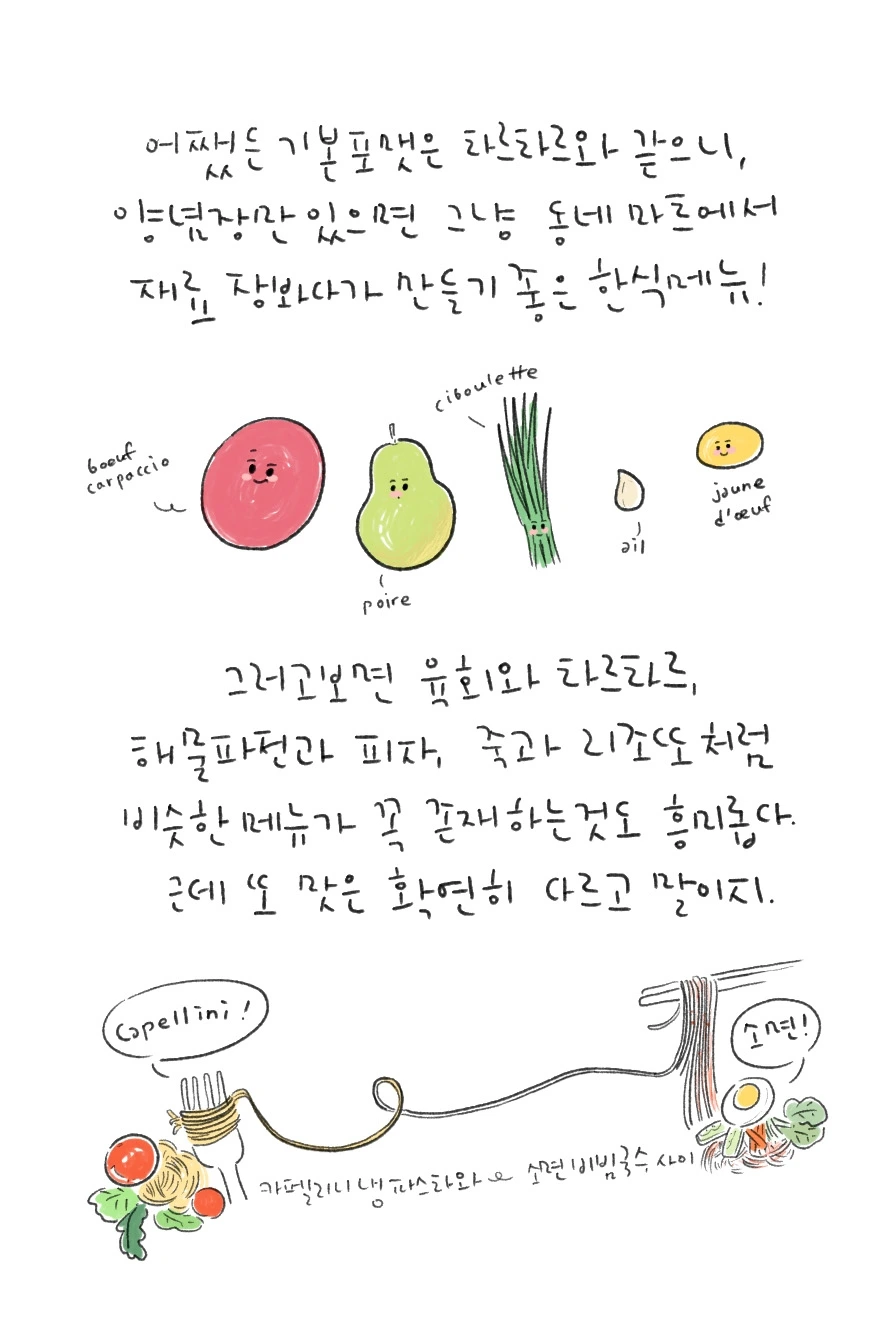 어쨌든 기본포맷은 타르타르와 같으니,
양념장만 있으면 그냥 동네 마트에서
재료 장봐다가 만들기 좋은 한식메뉴!
boeuf
carpaccio
poire
ciboulette
ail
jaune
d'œuf
그러고보면 육회와 타르타르,
해물파전과 피자, 죽과 리조또처럼
비슷한 메뉴가 꼭 존재하는것도 흥미롭다.
근데 또 맛은 확연히 다르고 말이지.
Capellini!
소면!
카펠리니 냉파스타와 소면 비빔국수 사이